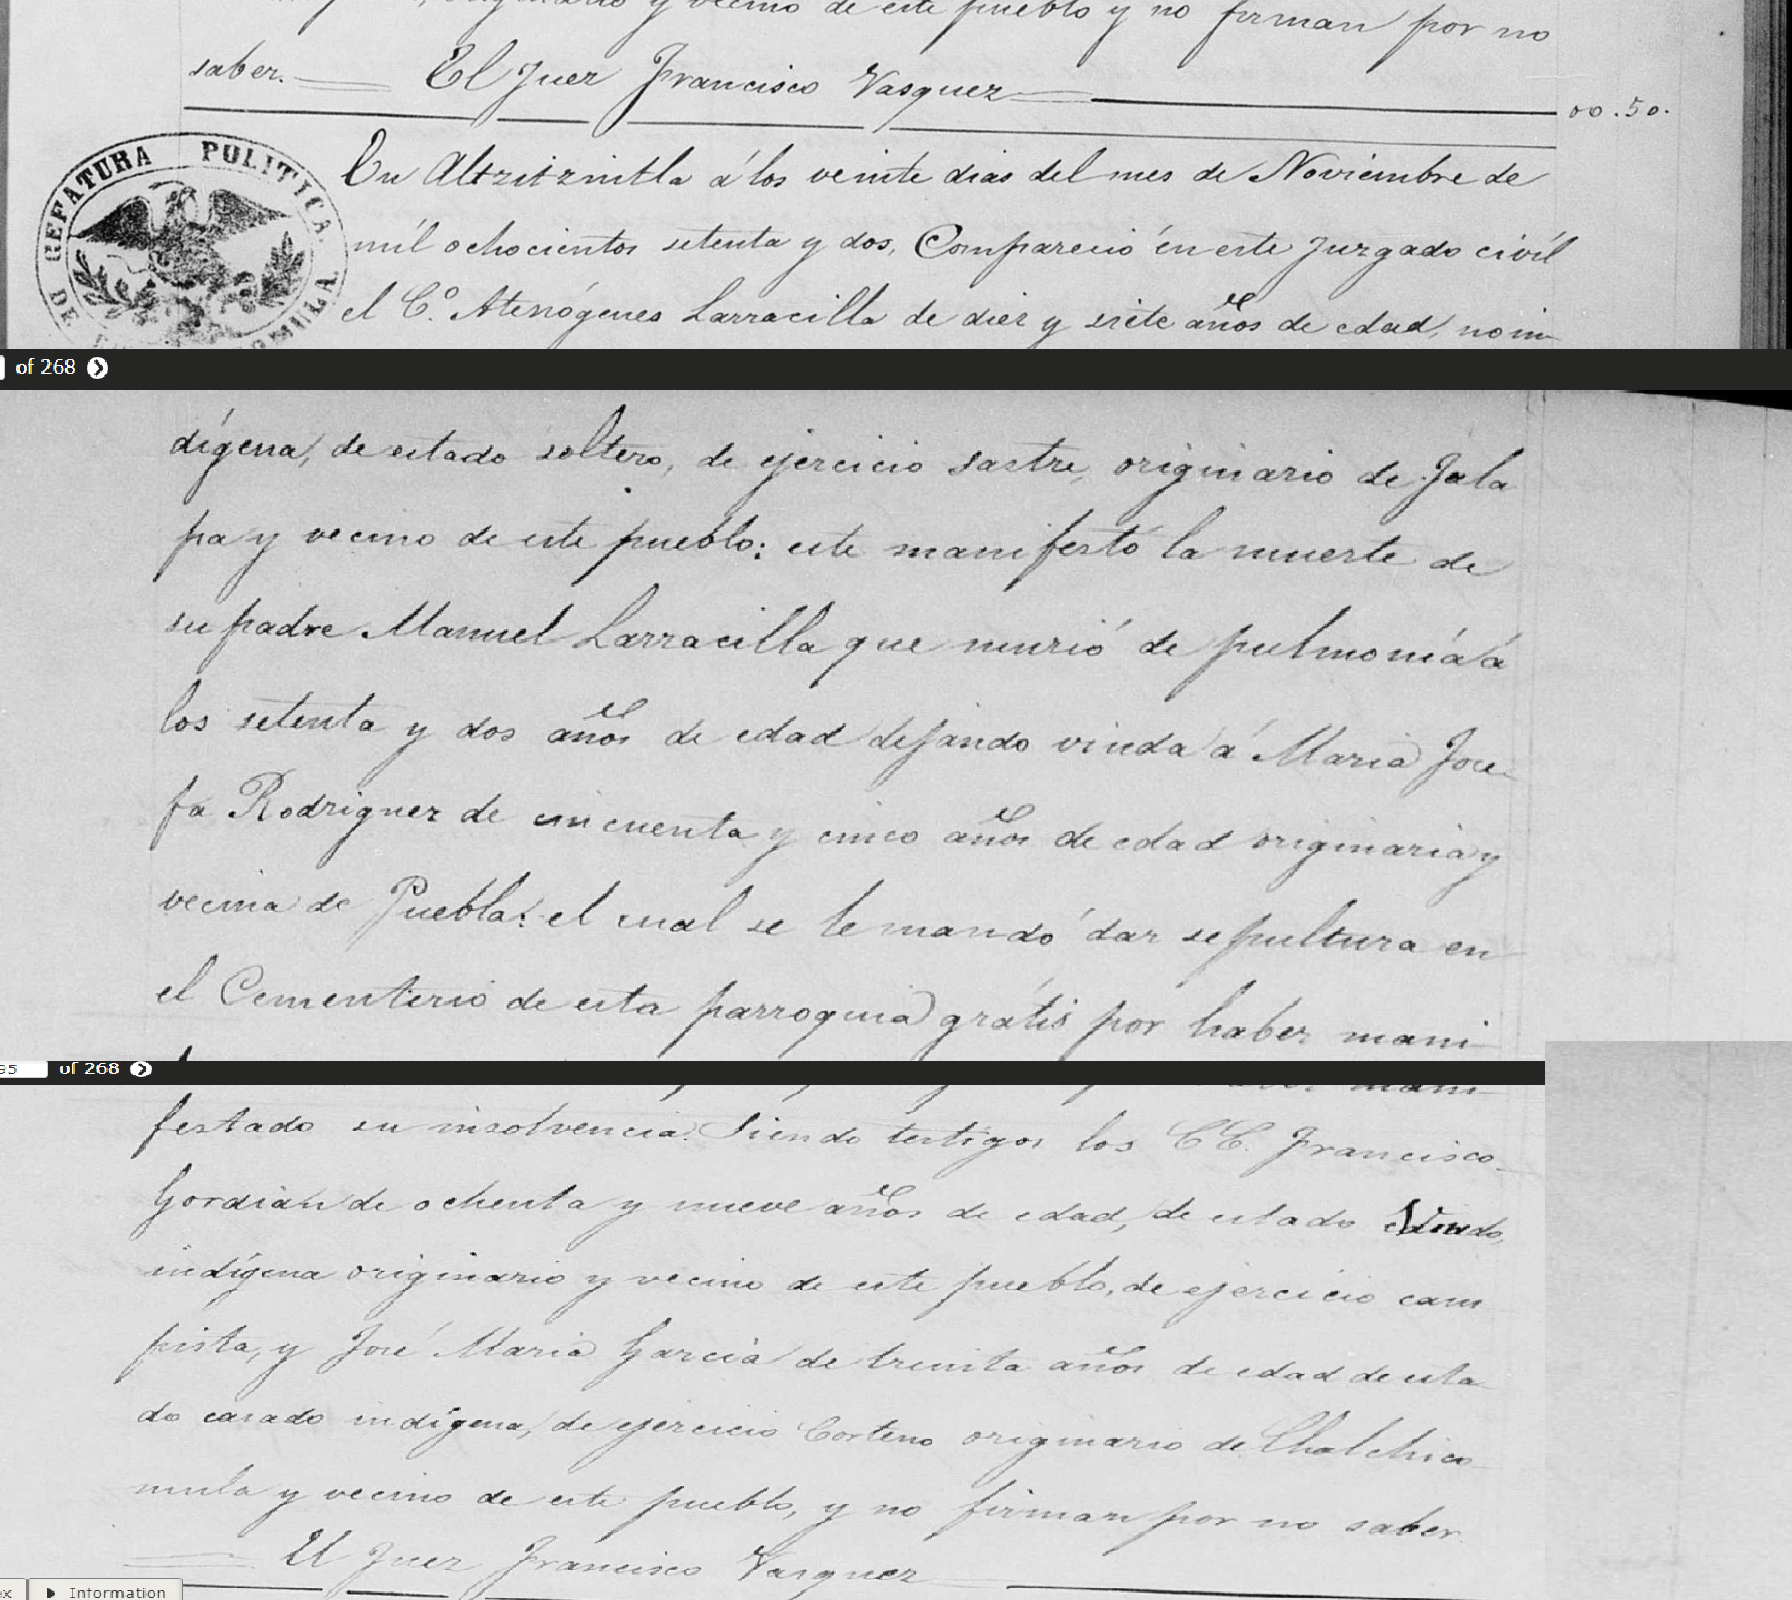 originario y vecino de este pueblo y no firman por no
saber. El Juez Francisco Vasquez
00.50.
GEFATURA POLITICA DE
En Altzitzintla á los veinte dias del mes de Noviembre de
mil ochocientos setenta y dos, Compareció en este Juzgado civil
el C.º Atenógenes Larracilla de diez y siete años de edad, no in
of 268
dígena, de estado soltero, de ejercicio sastre, originario de Jala
pa y vecino de este pueblo; este manifestó la muerte de
su padre Manuel Larracilla que murió de pulmoniá á
los setenta y dos años de edad dejando viuda á Maria Jose
fa Rodriguez de cincuenta y cinco años de edad originaria y
vecina de Puebla: el cual se le mandó dar sepultura en
el Cementerio de esta parroquia grátis por haber mani
95 of 268
festado su insolvencia. Siendo testigos los CC. Francisco
Gordian de ochenta y nueve años de edad, de estado Viudo,
indígena originario y vecino de este pueblo, de ejercicio cam
pista, y José Maria Garcia de treinta años de edad de esta
do casado indígena, de ejercicio Corteno originario de Chalchico
mula y vecino de este pueblo, y no firman por no saber.
El Juez Francisco Vasquez
ex Information